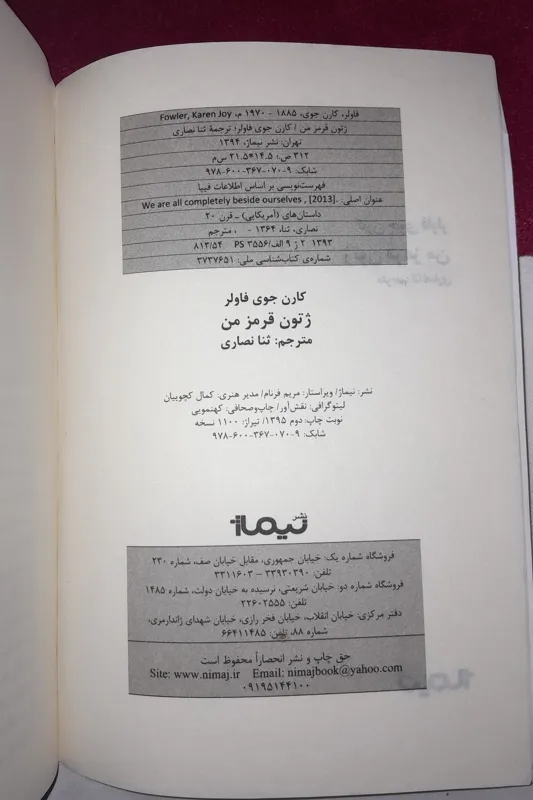 فاولر، کارن جوی، ۱۸۸۵ - ۱۹۷۰ م، Fowler, Karen Joy
ژتون قرمز من / کارن جوی فاولر؛ ترجمهٔ ثنا نصاری
تهران: نشر نیماژ، ۱۳۹۴
۳۱۲ ص؛ ۱۴.۵*۲۱.۵ س‌م
شابک: ۹-۰۷۰-۳۶۷-۶۰۰-۹۷۸
فهرست‌نویسی بر اساس اطلاعات فیپا
عنوان اصلی: We are all completely beside ourselves , [2013].
داستان‌های (آمریکایی) ـ قرن ۲۰
نصاری، ثنا، ۱۳۶۴ - ، مترجم
۱۳۹۳ ۲ ژ ۹ الف/PS ۳۵۵۶ ۸۱۳/۵۴
شماره‌ی کتاب‌شناسی ملی: ۳۷۳۷۶۵۱
کارن جوی فاولر
ژتون قرمز من
مترجم: ثنا نصاری
نشر: نیماژ/ ویراستار: مریم فرنام/ مدیر هنری: کمال کچوییان
لیتوگرافی: نقش‌آور/ چاپ‌وصحافی: کهنمویی
نوبت چاپ: دوم ۱۳۹۵/ تیراژ: ۱۱۰۰ نسخه
شابک: ۹-۰۷۰-۳۶۷-۶۰۰-۹۷۸
نشر نیماژ
فروشگاه شماره یک: خیابان جمهوری، مقابل خیابان صف، شماره ۲۳۰
تلفن: ۳۳۹۳۰۳۹۰ – ۳۳۱۱۶۰۳
فروشگاه شماره دو: خیابان شریعتی، نرسیده به خیابان دولت، شماره ۱۴۸۵
تلفن: ۲۲۶۰۲۵۵۵
دفتر مرکزی: خیابان انقلاب، خیابان فخر رازی، خیابان شهدای ژاندارمری،
شماره ۸۸، تلفن: ۶۶۴۱۱۴۸۵
حق چاپ و نشر انحصاراً محفوظ است
Site: www.nimaj.ir Email: nimajbook@yahoo.com
۰۹۱۹۵۱۴۴۱۰۰